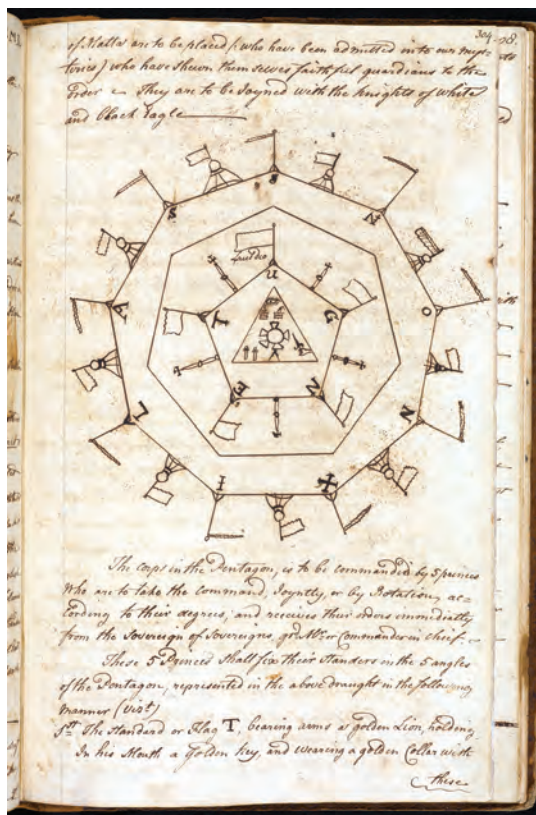 304
of Malta are to be placed (who have been admitted into our mys-
teries) who have shewn themselves faithful guardians to the
order ~ They are to be Joyned with the Knights of White
and black Eagle
S
S
N
A
O
L
N
I
X
U
T
G
E
N
The Corps in the Pentagon, is to be commanded by 5 princes
Who are to take the Command, Joyntly, or by Rotation, ac=
cording to their degrees, and receives their orders immediatly
from the Sovereign of Sovereigns, or Commander in cheif
These 5 Princes Shall fix their Standers in the 5 angles
of the Pentagon, represented in the above draught in the following
Manner (Vizt)
The Standard or Flag T, bearing arms a golden Lion, holding
In his Mouth a Golden Key, and wearing a golden Collar with
these